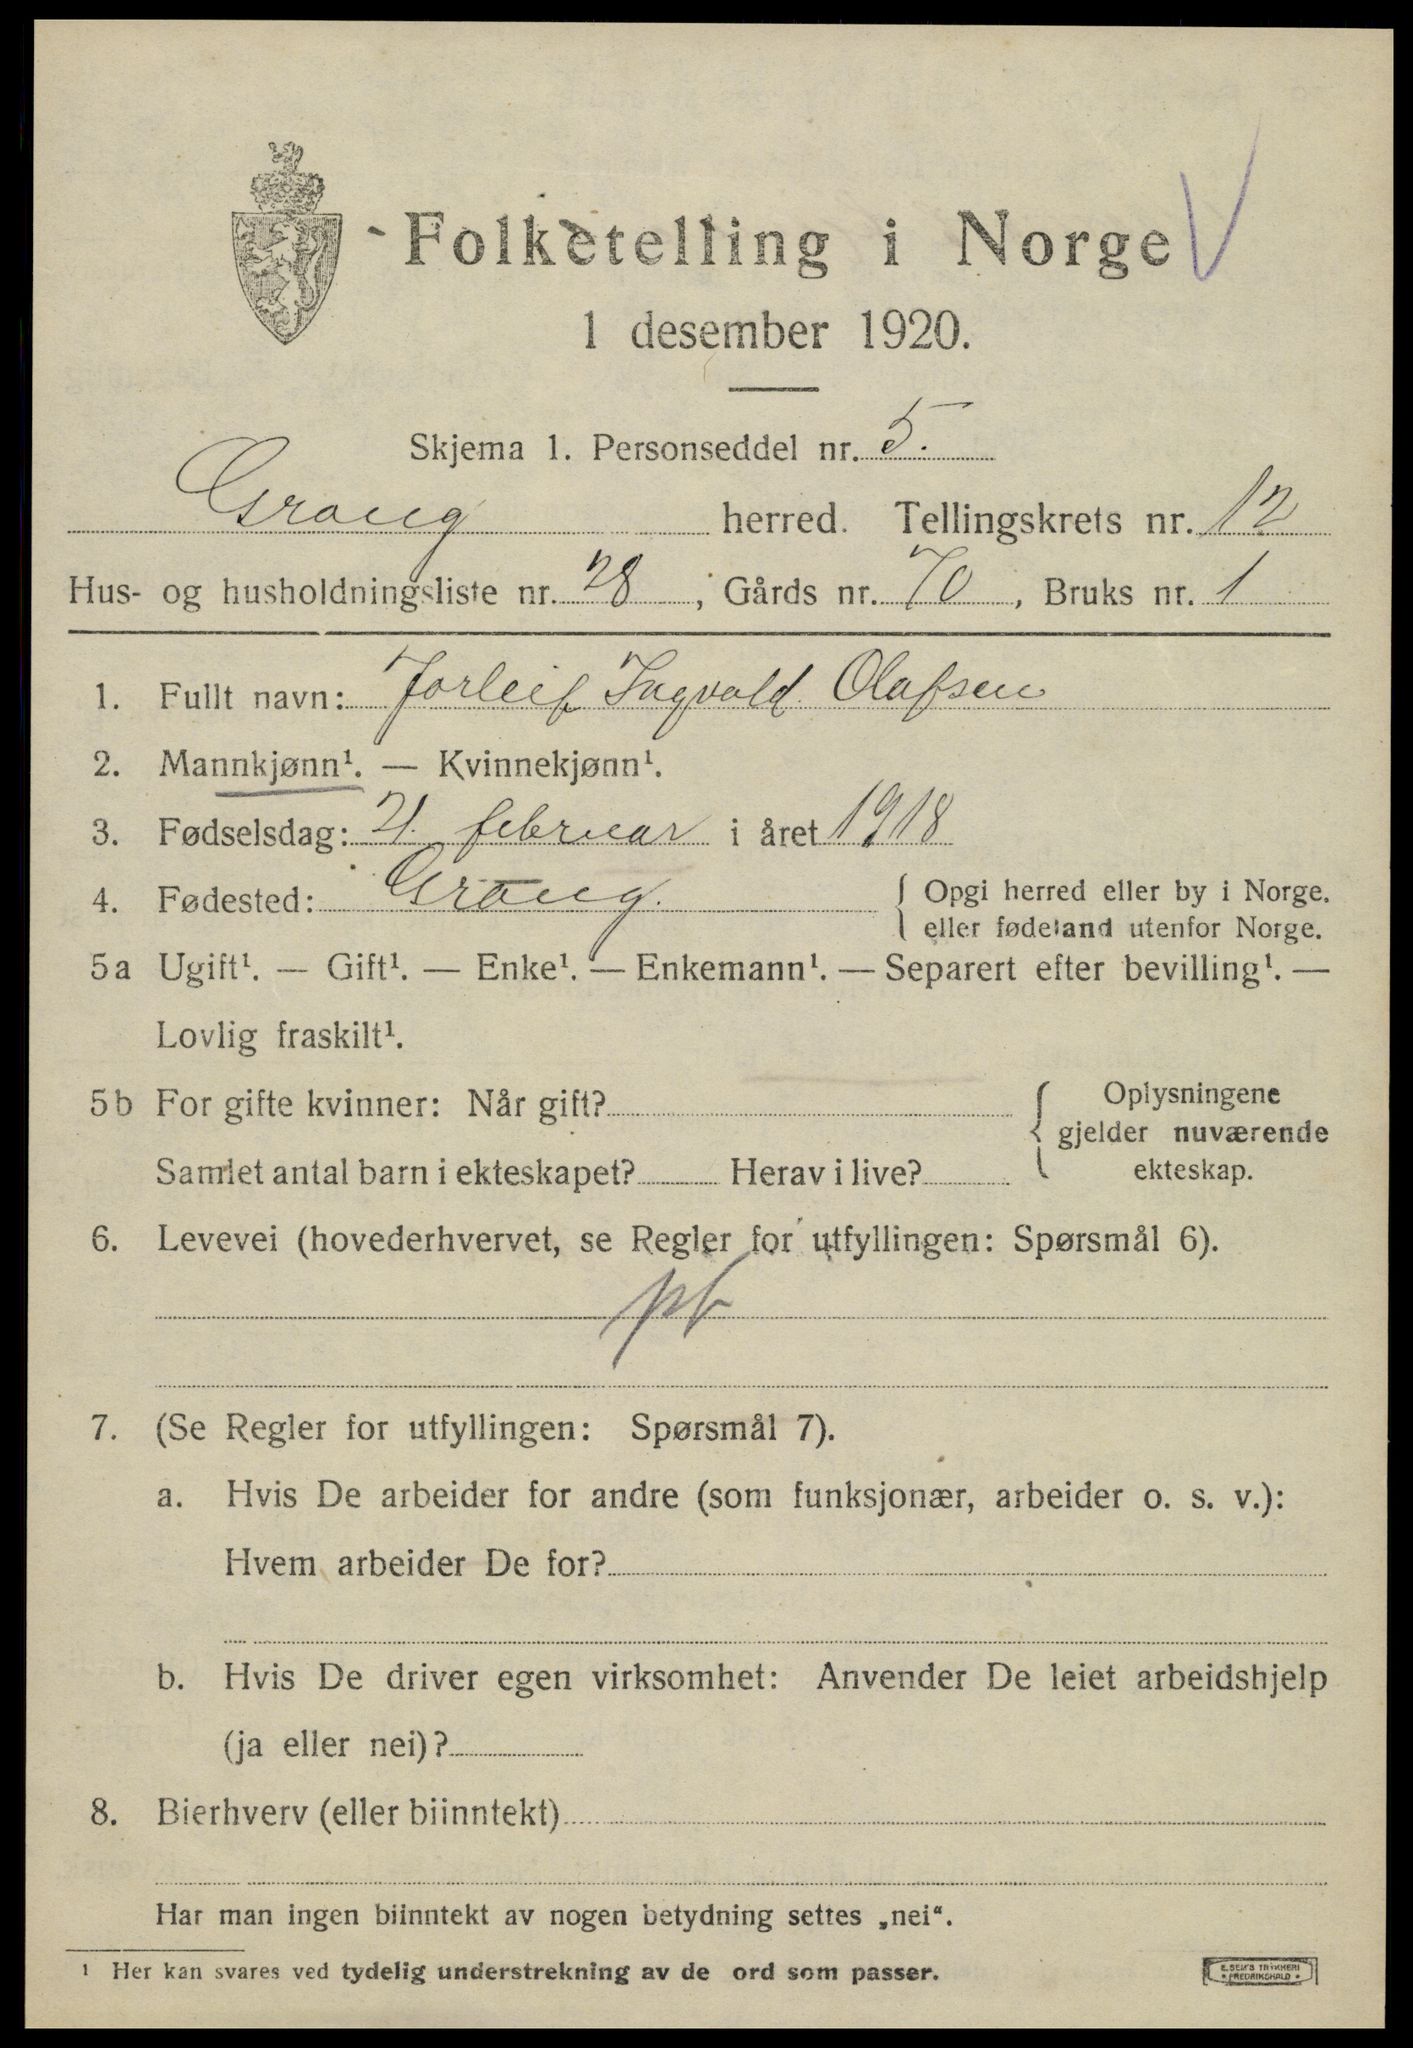 Folketelling i Norge
1 desember 1920.
Skjema 1. Personseddel nr. 5.
Grong herred. Tellingskrets nr. 12
Hus- og husholdningsliste nr. 28, Gårds nr. 70, Bruks nr. 1
1. Fullt navn: Torleif Ingvald Olafsen
2. Mannkjønn¹. — Kvinnekjønn¹.
3. Fødselsdag: 21. februar i året 1918
4. Fødested: Grong. { Opgi herred eller by i Norge.
eller fødeland utenfor Norge.
5a Ugift¹. — Gift¹. — Enke¹. — Enkemann¹. — Separert efter bevilling¹. —
Lovlig fraskilt¹.
5b For gifte kvinner: Når gift? { Oplysningene
gjelder nuværende
Samlet antal barn i ekteskapet? Herav i live? ekteskap.
6. Levevei (hovederhvervet, se Regler for utfyllingen: Spørsmål 6).
7. (Se Regler for utfyllingen: Spørsmål 7).
a. Hvis De arbeider for andre (som funksjonær, arbeider o. s. v.):
Hvem arbeider De for?
b. Hvis De driver egen virksomhet: Anvender De leiet arbeidshjelp
(ja eller nei)?
8. Bierhverv (eller biinntekt)
Har man ingen biinntekt av nogen betydning settes „nei“.
¹ Her kan svares ved tydelig understrekning av de ord som passer.
E. SEM'S TRYKKERI
• FREDRIKSHALD •